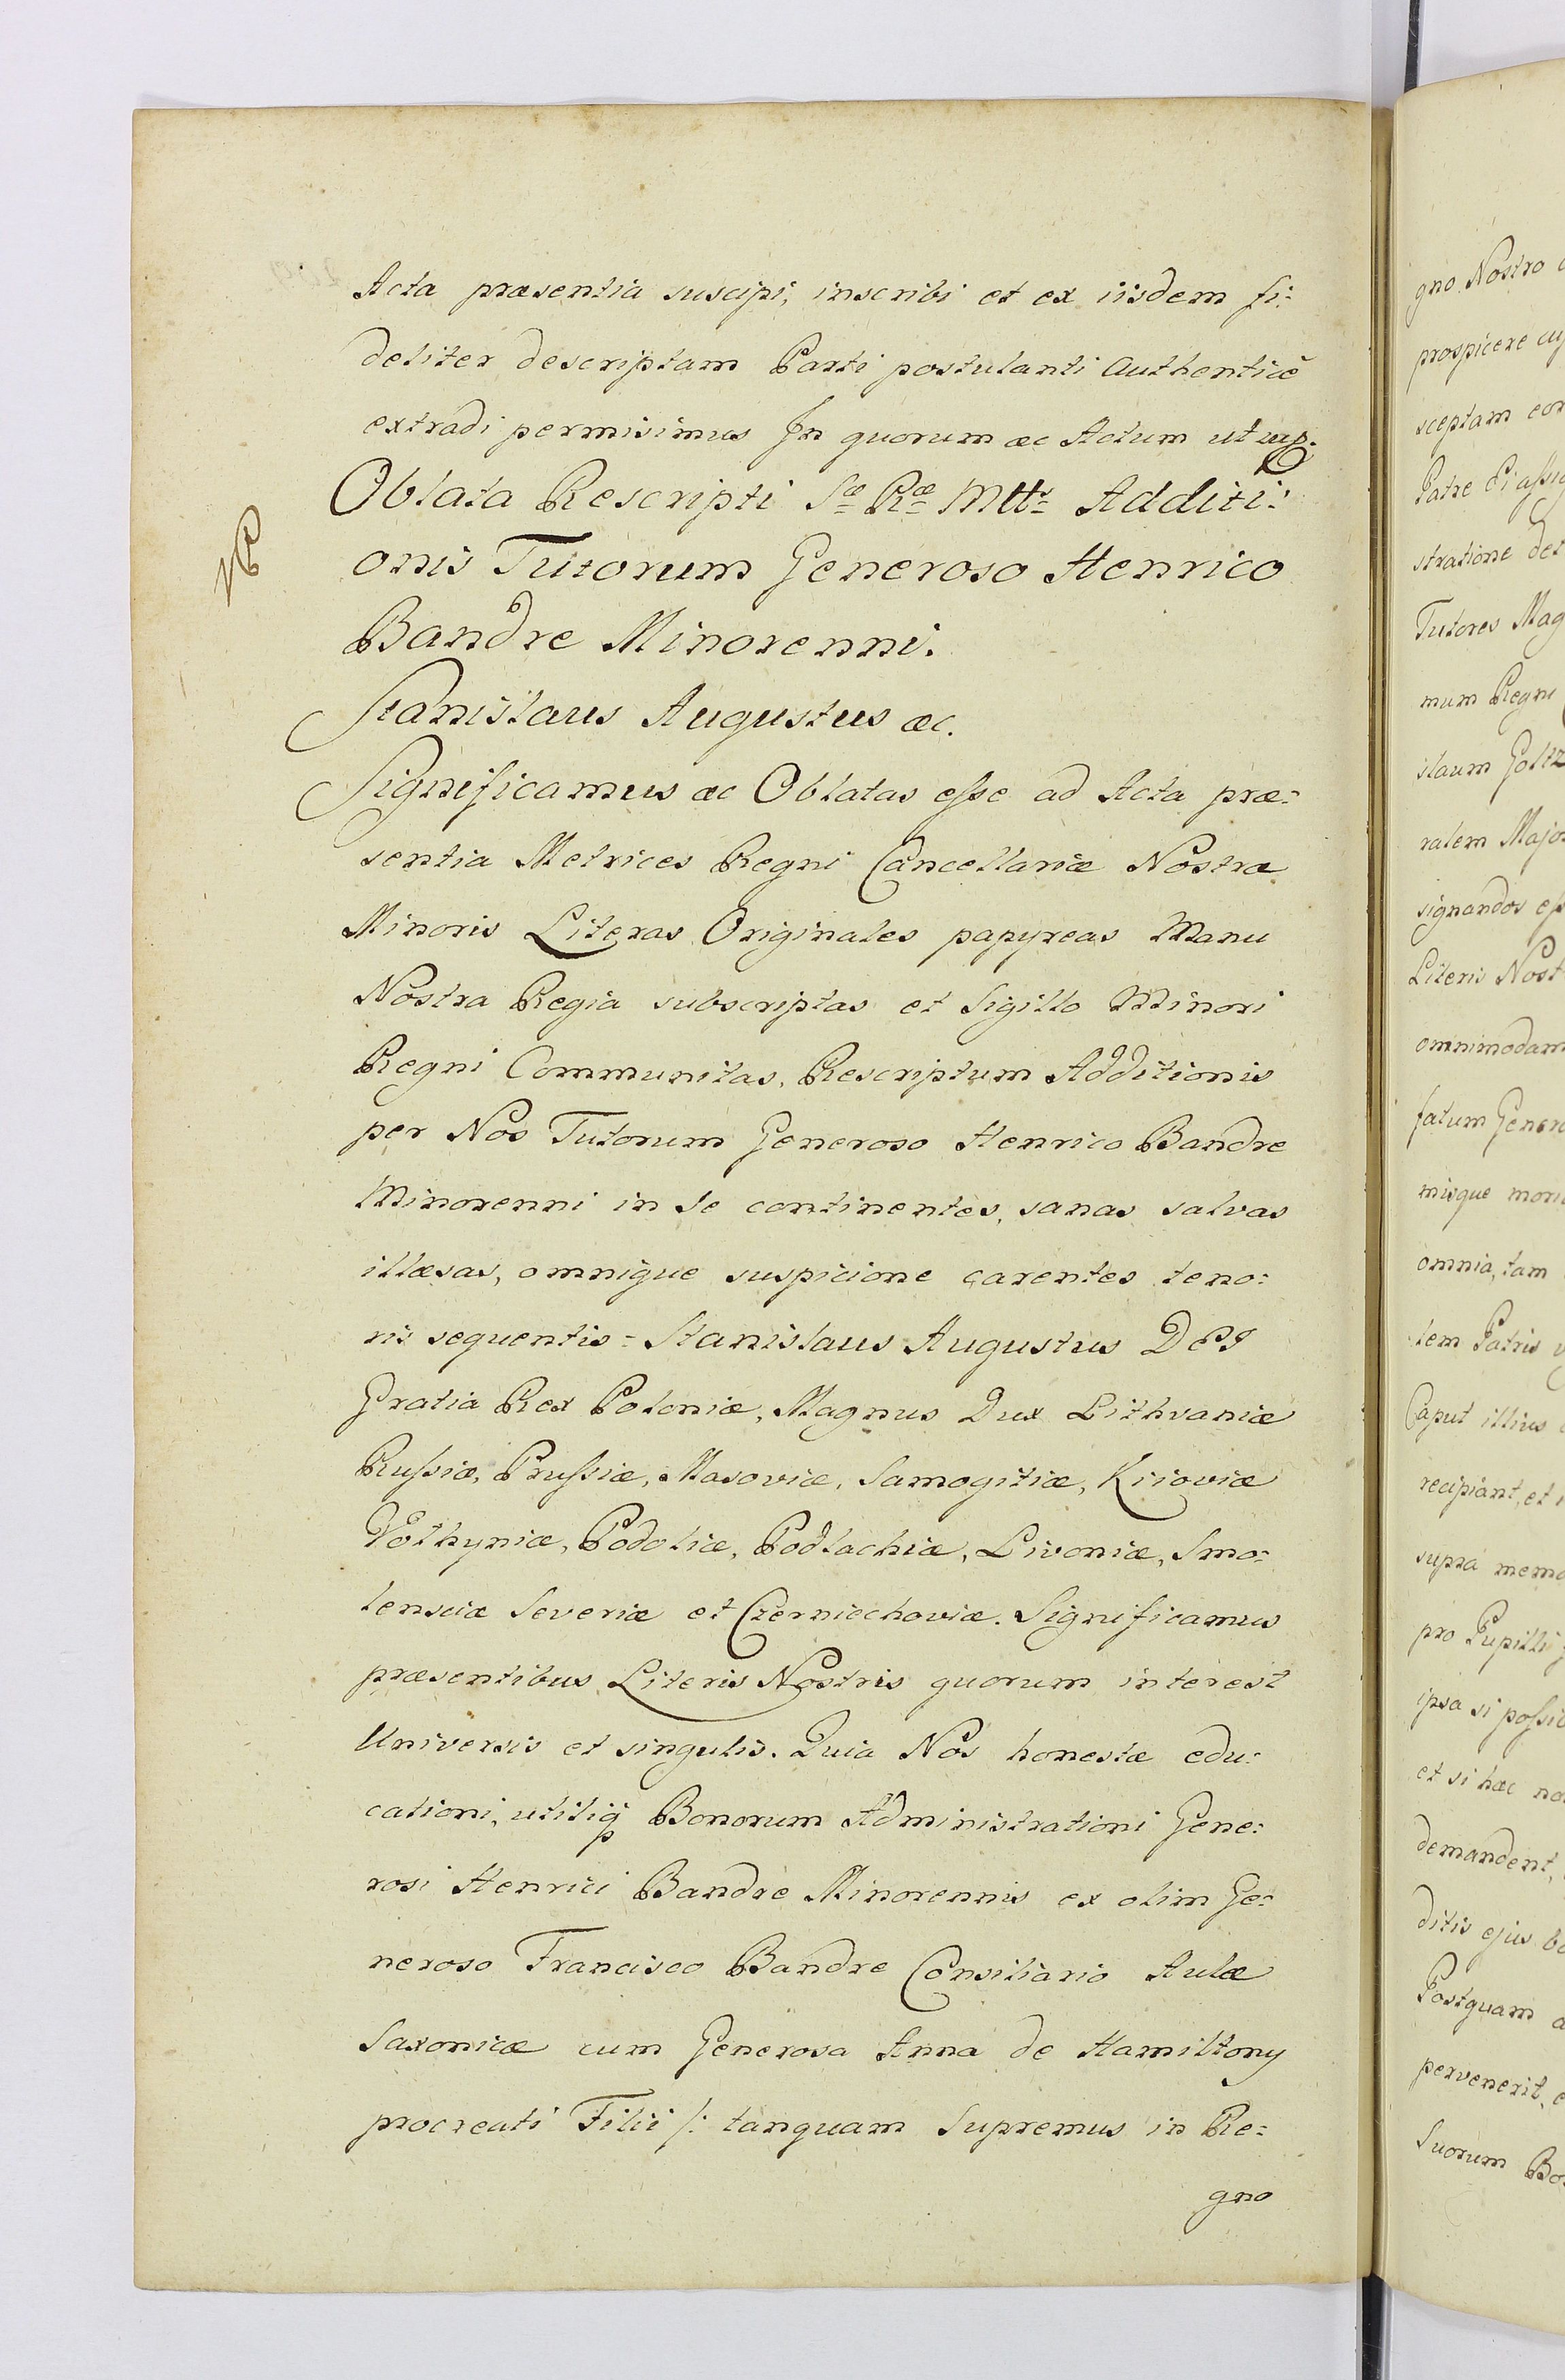 Acta præsentia suscipi, inscribi et ex iisdem fi:
deliter descriptam Parti postulanti authenticè
extradi permisimus In quorum &c Actum ut sup.
Oblata Rescripti Sæ Ræ Mttis Additi:
onis Tutorum Generoso Henrico
Bandre Minorenni.
Stanislaus Augustus &c.
Significamus &c Oblatas esse ad Acta præ:
sentia Metrices Regni Cancellariæ Nostræ
Minoris Literas Originales papyreas Manu
Nostra Regia subscriptas et Sigillo Minori
Regni Communitas, Rescriptum Additionis
per Nos Tutorum Generoso Henrico Bandre
Minorenni in se continentes, sanas salvas
illæsas, omnique suspicione carentes teno:
ris sequentis = Stanislaus Augustus DEI
Gratia Rex Poloniæ, Magnus Dux Lithvaniæ
Russiæ, Prussiæ, Masoviæ, Samogitiæ, Kiioviæ
Volhyniæ, Podoliæ, Podlachiæ, Livoniæ, Smo:
lensciæ Severiæ et Czerniechoviæ. Significamus
præsentibus Literis Nostris quorum interest
Universis et singulis. Quia Nos honestæ edu:
cationi, utiliq Bonorum Administrationi Gene:
rosi Henrici Bandre Minorennis ex olim Ge:
neroso Francisco Bandre Consiliario Aulæ
Saxonicæ cum Generosa Anna de Hamiltony
procreati Filii /: tanquam Supremus in Re:
gno
gno Nostro
prospicere
sceptam
Patre
stratione
Tutores
mum Regni
slaum Goltz
ralem
signandos
Literis
omnimodam
fatum
misque
omnia, tam
tem Patris
Caput illius
recipiant, et
supra
pro Pupilli
ipsa si
et si hæc
demandent,
ditis ejus
Postquam
pervenerit,
Suorum